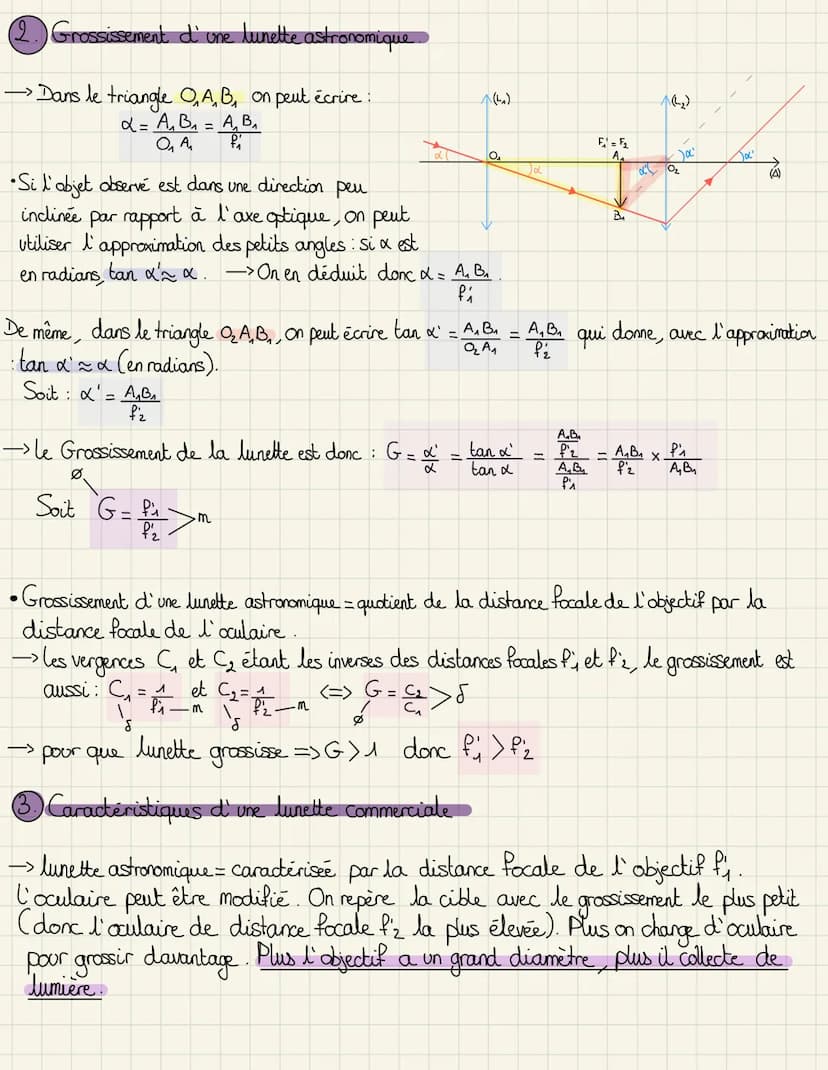 2. Grossissement d'une lunette astronomique
→ Dans le triangle O₁A₁B₁ on peut écrire :
α = A₁B₁/O₁A₁ = A₁B₁/f'₁
• Si l'objet observé est dans une direction peu
inclinée par rapport à l'axe optique, on peut
utiliser l'approximation des petits angles : si α est
en radians, tan α' ≈ α. → On en déduit donc α = A₁B₁/f'₁.
(L₁)
(L₂)
F₁' = F₂
A₁
O₁
O₂
B₁
(Δ)
α
α
α'
α'
α'
De même, dans le triangle O₂A₁B₁, on peut écrire tan α' = A₁B₁/O₂A₁ = A₁B₁/f'₂ qui donne, avec l'approximation
: tan α' ≈ α (en radians).
Soit : α' = A₁B₁/f'₂
→ le Grossissement de la lunette est donc : G = α'/α = tan α'/tan α = (A₁B₁/f'₂)/(A₁B₁/f'₁) = A₁B₁/f'₂ × f'₁/A₁B₁
Ø
Soit G = f'₁/f'₂ > m
• Grossissement d'une lunette astronomique = quotient de la distance focale de l'objectif par la
distance focale de l'oculaire.
→ les vergences C₁ et C₂ étant les inverses des distances focales f'₁ et f'₂, le grossissement est
aussi : C₁ = 1/f'₁ — m et C₂ = 1/f'₂ — m <=> G = C₂/C₁ > δ
δ δ Ø
→ pour que lunette grossisse => G > 1 donc f'₁ > f'₂
3. Caractéristiques d'une lunette commerciale
→ lunette astronomique = caractérisée par la distance focale de l'objectif f'₁.
L'oculaire peut être modifié. On repère la cible avec le grossissement le plus petit
(donc l'oculaire de distance focale f'₂ la plus élevée). Plus on change d'oculaire
pour grossir davantage. Plus l'objectif a un grand diamètre, plus il collecte de
lumière.